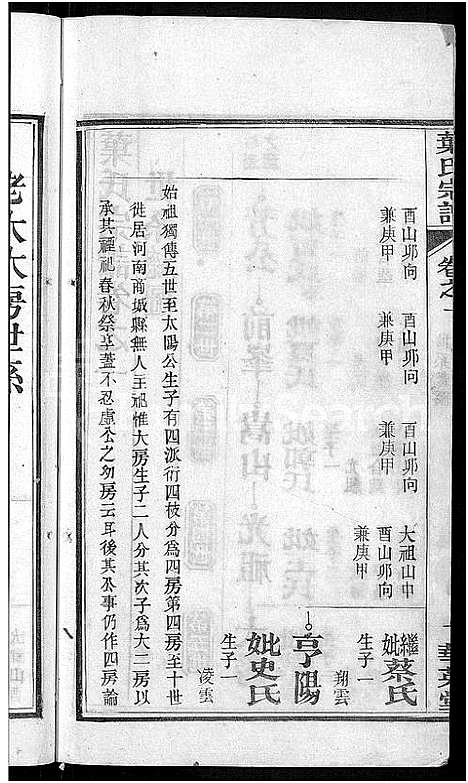 葉氏宗譜
卷之一
酉山卯向
兼庚甲
酉山卯向
兼庚甲
酉山卯向
兼庚甲
大祖山中
酉山卯向
兼庚甲
繼
妣蔡氏
生子一
翔雲
亨陽
妣史氏
生子一
淩雲
始祖獨傳五世至太陽公生子有四派衍四枝分為四房第四房至十世
徙居河南商城縣無人主祀惟大房生子二人分其次子為大二房以
承其禋祀春秋祭享蓋不忍虛公之幼房云耳後其公事仍作四房論
老大大房世系